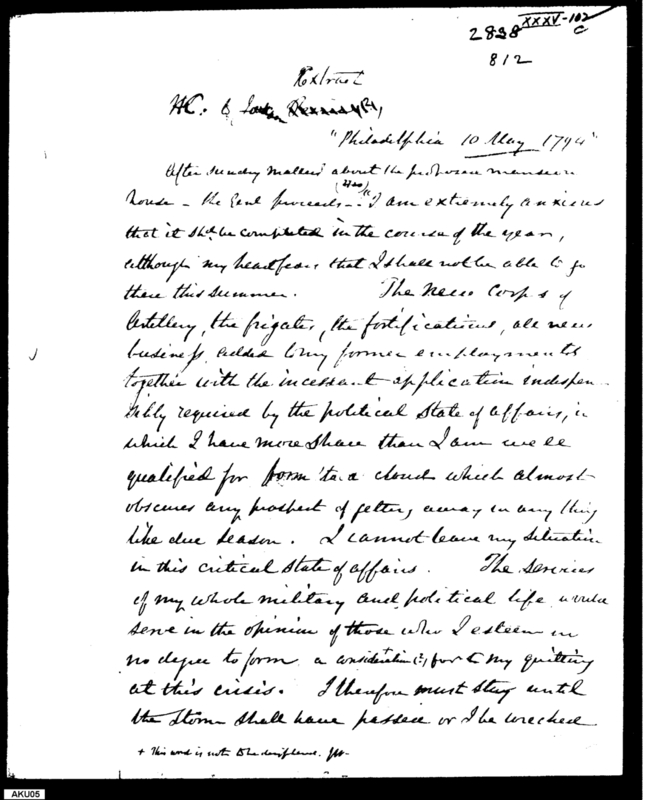 XXXV-102
2898 C
812
Extract
HK. to
"Philadelphia 10 May 1794"
After sundry matters about the proposed mansion
house – the Genl proceeds – "I am extremely anxious
that it shd. be completed in the course of the year,
although my heart fears that I shall not be able to go
there this summer. The new Corps of
Artillery, the frigates, the fortifications, all new
business, added to my former employments
together with the incessant application indispen-
sibly required by the political State of affairs, in
which I have more share than I am well
qualified for form a cloud which almost
obscures any prospect of getting away in any thing
like due season. I cannot leave my situation
in this critical state of affairs. The services
of my whole military and political life would
serve in the opinion of those who I esteem in
no degree to form a +consideration (?) for my quitting
at this crisis. I therefore must stay until
the storm shall have passed or I be wrecked
+ This word is not to be deciphered.
AKU05